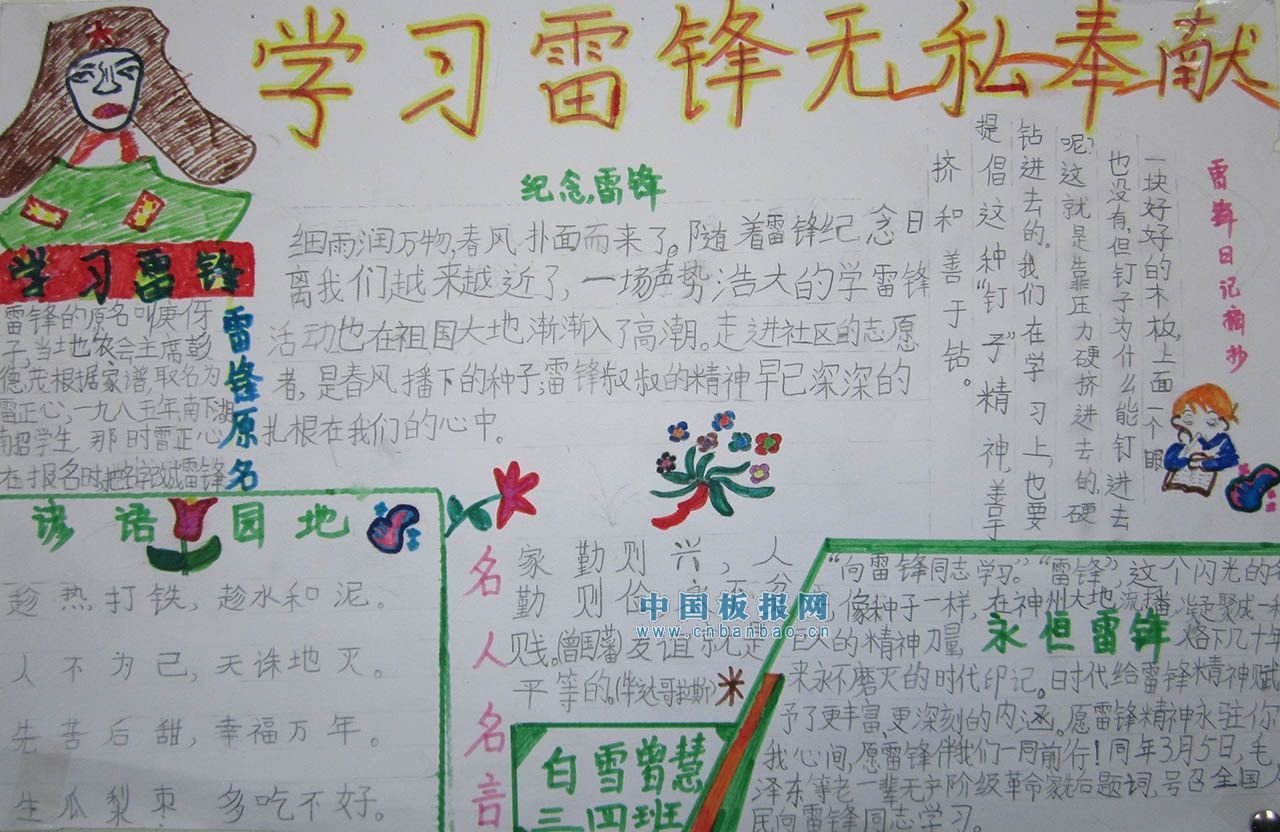 学习雷锋无私奉献
学习雷锋
雷锋原名
雷锋的原名叫庚伢
子,当地农会主席彭
德茂根据家谱,取名为
雷正心;一九八五年南下湖
南招学生,那时雷正心
在报名时,把名字改成雷锋
纪念雷锋
细雨润万物,春风扑面而来了。随着雷锋纪念日
离我们越来越近了,一场声势浩大的学雷锋
活动也在祖国大地渐渐入了高潮。走进社区的志愿
者,是春风播下的种子;雷锋叔叔的精神早已深深的
扎根在我们的心中。
雷锋日记摘抄
一块好好的木板,上面一个眼
也没有,但钉子为什么能钉进去
呢?这就是靠压力硬挤进去的,硬
钻进去的。我们在学习上,也要
提倡这种“钉子”精神,善于
挤和善于钻。
谚语园地
趁热打铁,趁水和泥。
人不为己,天诛地灭。
先苦后甜,幸福万年。
生瓜梨枣 多吃不好。
名人名言
家勤则兴,人
勤则
贱。(曾国藩)友谊就是
平等的。(毕达哥拉斯)
中国板报网
www.cnbanbao.cn
白雪曾慧
三四班
永恒雷锋
“向雷锋同志学习。”“雷锋”,这个闪光的名
像种子一样,在神州大地流播,凝聚成一种
巨大的精神力量,烙下几十年
来永不磨灭的时代印记。时代给雷锋精神赋
予了更丰富、更深刻的内涵。愿雷锋精神永驻你
我心间,愿雷锋伴我们一同前行!同年3月5日,毛
泽东等老一辈无产阶级革命家先后题词,号召全国人
民向雷锋同志学习。